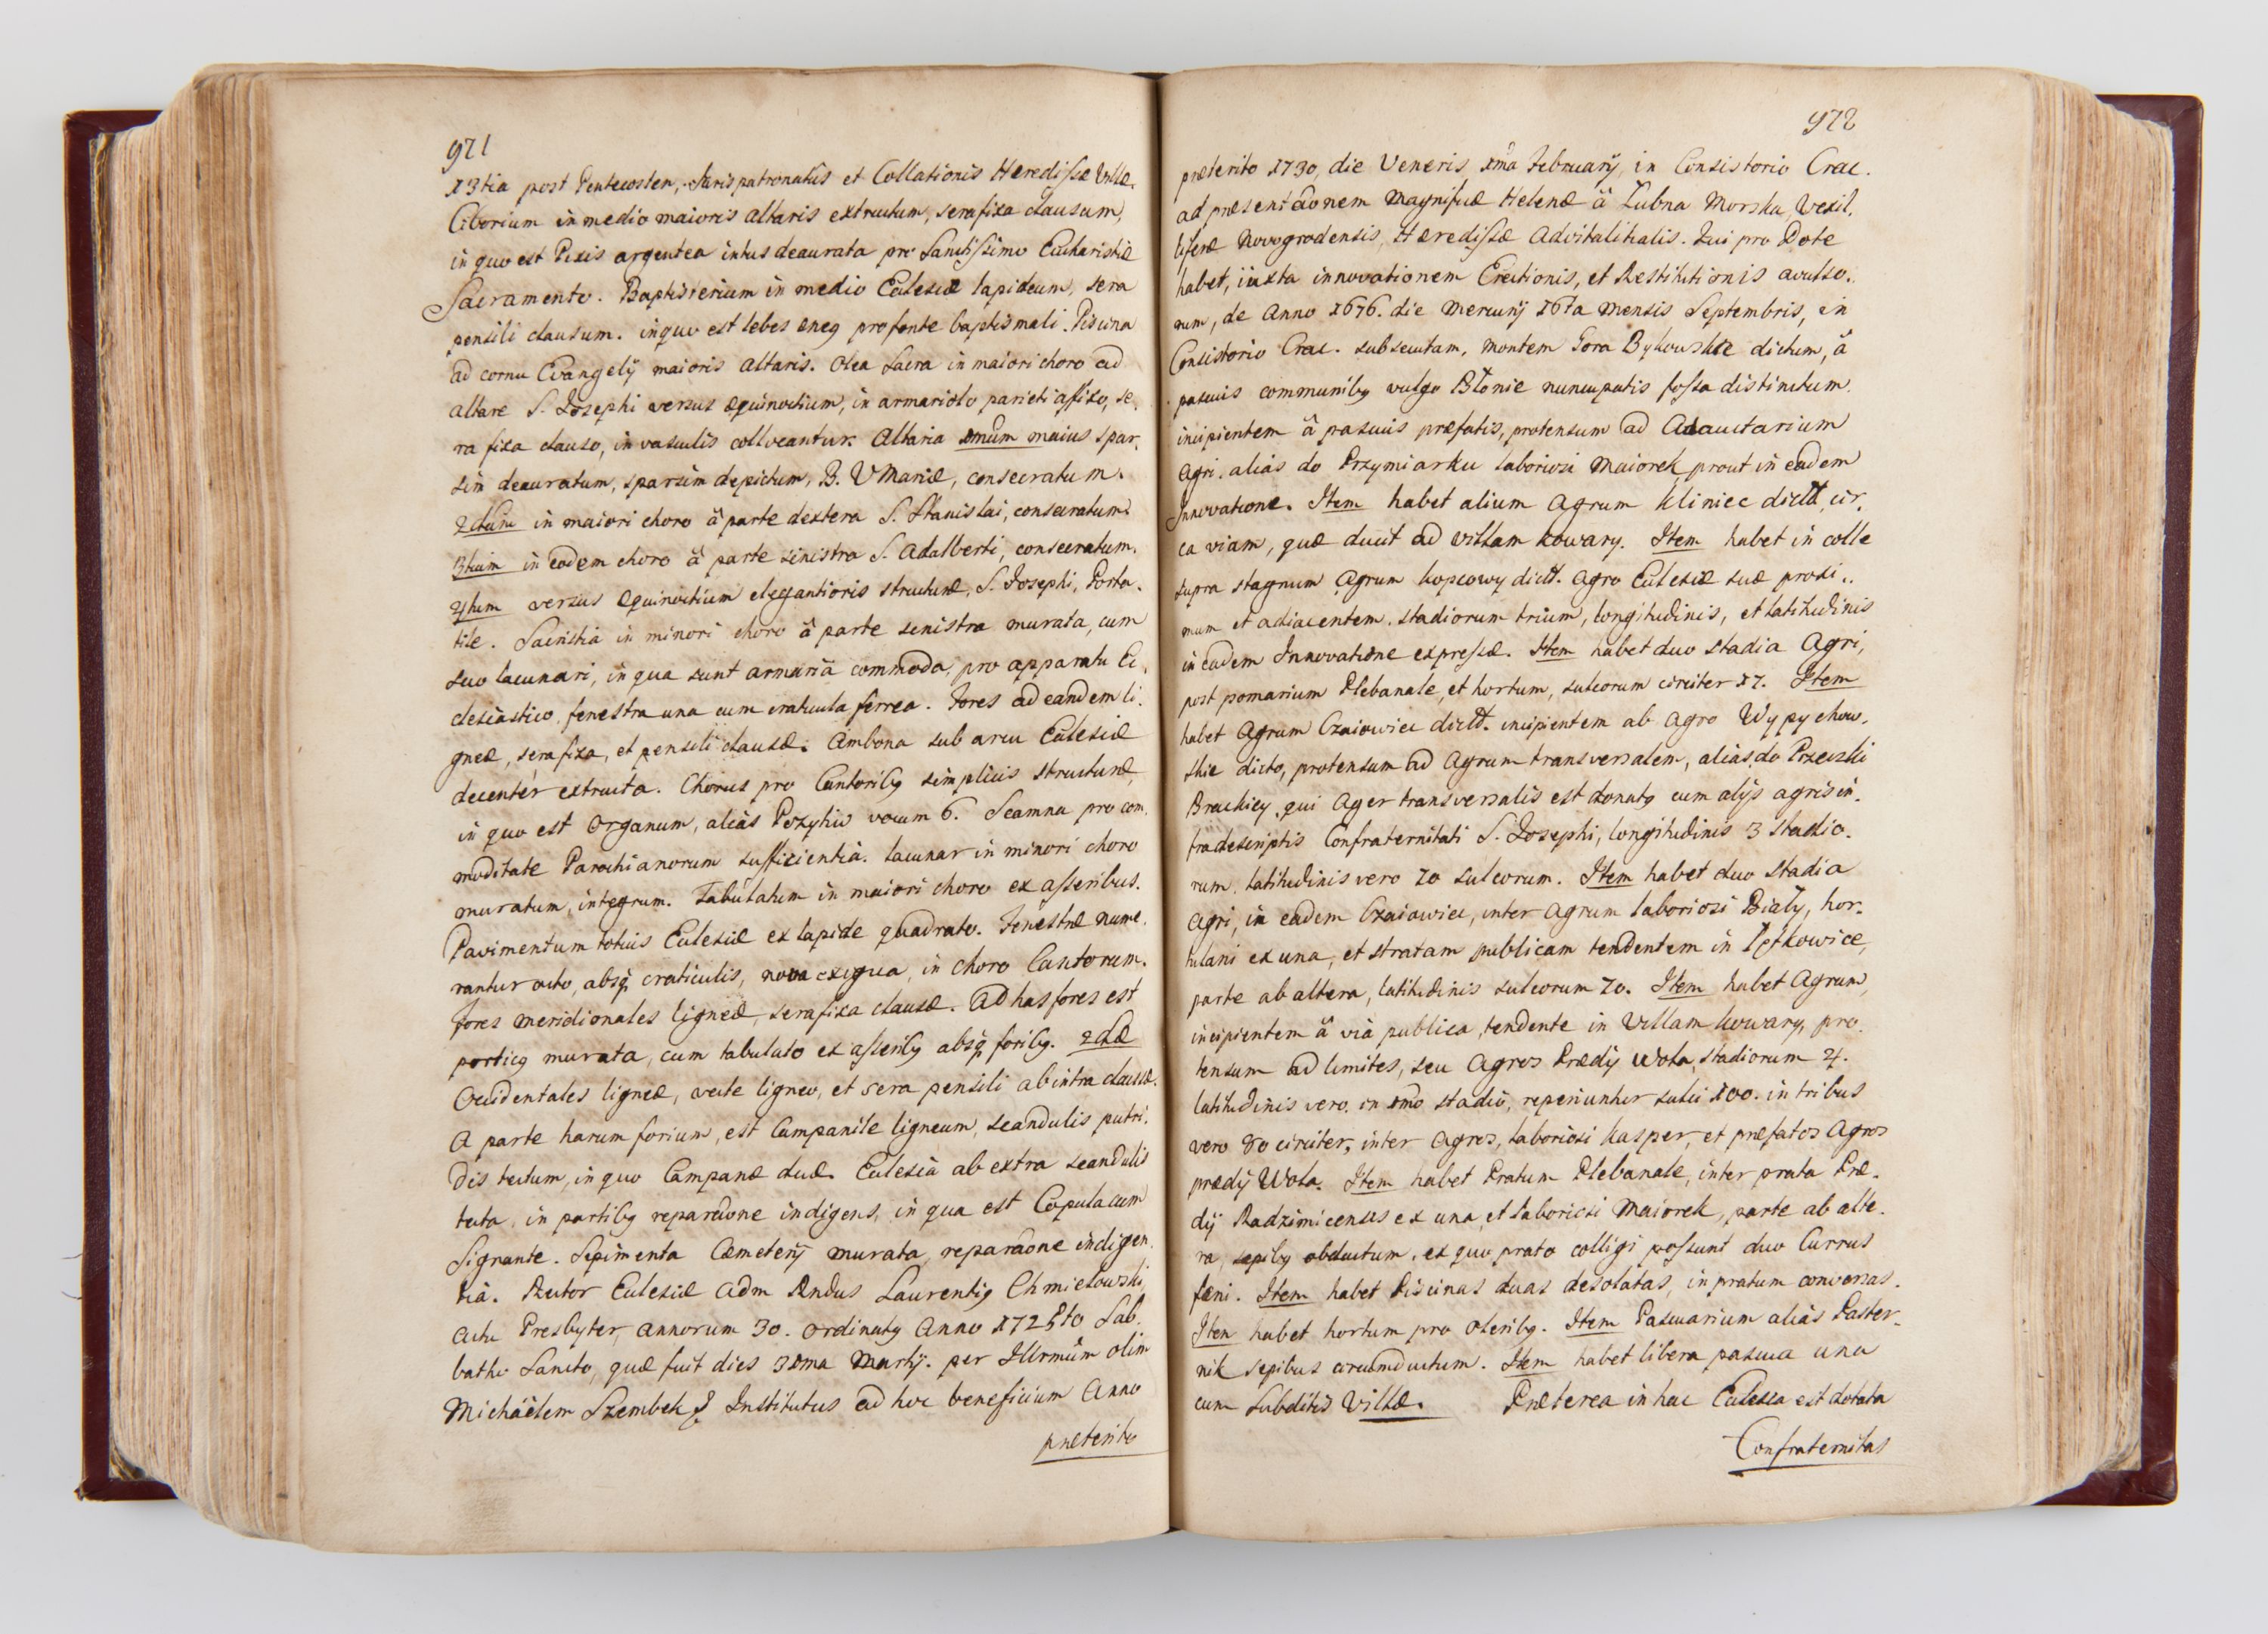 971
13tia post Pentecosten, Jurispatronatûs et Collationis Heredissæ Villæ.
Ciborium in medio maioris altaris extructum, sera fixa clausum,
in quo est Pixis argentea intus deaurata pro Sanctissimo Eucharistiæ
Sacramento. Baptisterium in medio Ecclesiæ lapideum, sera
pensili clausum. in quo est lebes æneg pro fonte baptismali. Piscina
ad cornu Evangelÿ maioris altaris. Olea Sacra in maiori choro ad
altare S. Josephi versus æquinoctium, in armariolo parieti affixo, se-
ra fixa clauso, in vasculis collocantur. Altaria 1mum maius spar-
sim deauratum, sparsim depictum, B. V Mariæ, consecratum.
2dum in maiori choro â parte dextera S. Stanislai, consecratum.
3tium in eodem choro â parte sinistra S. Adalberti, consecratum.
4tum versus æquinoctium elegantioris structuræ, S. Josephi, Porta-
tile. Sacristia in minori choro â parte sinistra murata, cum
suo lacunari, in qua sunt armaria commoda, pro apparatu Ec-
clesiastico, fenestra una cum craticula ferrea. Fores ad eandem li-
gneæ, sera fixa, et pensili clausæ. Ambona sub arcu Ecclesiæ
decentèr extructa. Chorus pro Cantoribg simplicis structuræ,
in quo est Organum, aliàs Pozytiw vocum 6. Scamna pro com-
moditate Parochianorum sufficientia. Lacunar in minori choro
muratum, integrum. Tabulatum in maiori choro ex asseribus.
Pavimentum totius Ecclesiæ ex lapide quadrato. Fenestræ nume-
rantur octo, absq craticulis, nona exigua, in choro Cantorum.
Fores meridionales ligneæ, sera fixa clausæ. Ad has fores est
porticg murata, cum tabulato ex asseribg absq foribg. 2dæ
Occidentales ligneæ, vecte ligneo, et sera pensili ab intra clausæ.
A parte harum forium, est Campanile ligneum, scandulis putri-
dis tectum, in quo Campanæ duæ. Ecclesia ab extra scandulis
tecta, in partibg reparaõne indigens, in qua est Copula cum
Signante. Sepimenta Cæmeterÿ murata, reparaõne indigen-
tia. Rector Ecclesiæ Adm Rndus Laurentig Chmielowski,
actu Presbyter, annorum 30. ordinatg Anno 1725to Sab-
batho Sancto, quæ fuit dies 31ma Martÿ. per Illrmum olim
Michaëlem Szembek Institutus ad hoc beneficium Anno
præterito
972
præterito 1730, die Veneris, 1ma Februarÿ, in Consistorio Crac.
ad præsentaõnem Magnificæ Helenæ â Łubna Morska, Vexil-
liferæ Novogrodensis, Hæredissæ Advitalitialis. Qui pro Dote
habet, iuxta innovationem Erectionis, et Restitutionis avulso-
rum, de Anno 1676. die Mercurÿ 16ta Mensis Septembris, in
Consistorio Crac. subsecutam, montem Gora Bykowskie dictum, â
pascuis communibg vulgo Błonie nuncupatis fossa distinctum.
incipientem â pascuis præfatis, protensum ad Adauctarium
Agri, aliàs do Przymiarku laboriosi Maiorek, prout in eadem
Innovatione. Item habet alium Agrum Kliniec dictū, cir-
ca viam, quæ ducit ad Villam Kowary. Item habet in colle
supra stagnum Agrum kopcowy dictū. Agro Ecclesiæ suæ proxi-
mum et adiacentem, stadiorum trium, longitudinis, et latitudinis
in eadem Innovatione expressæ. Item habet duo stadia Agri,
post pomarium Plebanale, et hortum, sulcorum circiter 17. Item
habet Agrum Czaiowiec dictū. incipientem ab Agro Wypychow-
skie dicto, protensum ad Agrum transversalem, aliàs do Przeczki
Brackiey, qui Ager transversalis est donatg cum alÿs agris in-
fradescriptis Confraternitati S. Josephi, longitudinis 3 stadio-
rum, latitudinis vero 70 sulcorum. Item habet duo stadia
Agri, in eadem Czaiowiec, inter Agrum laboriosi Biały, hor-
tulani ex una, et stratam publicam tendentem in Pętkowice,
parte ab altera, latitudinis sulcorum 70. Item habet Agrum,
incipientem â via publica tendente in Villam Kowary, pro-
tensum ad limites, seu Agros Prædÿ Wola, stadiorum 4.
latitudinis vero in 1mo stadio, reperiuntur sulci 100. in tribus
vero 80 circiter, inter Agros, laboriosi Kasper, et præfatos Agros
prædÿ Wola. Item habet Pratum Plebanale, inter prata Præ-
dÿ Radzimicensis ex una, et laboriosi Maiorek, parte ab alte-
ra, sepibg obductum, ex quo prato colligi possunt duo Currus
fæni. Item habet Piscinas duas desolatas, in pratum conversas.
Iten habet hortum pro Oleribg. Item Pascuarium aliàs Paster-
nik sepibus circumductum. Item habet libera pascua una
cum Subditis Villæ. Præterea in hac Ecclesia est dotata
Confraternitas